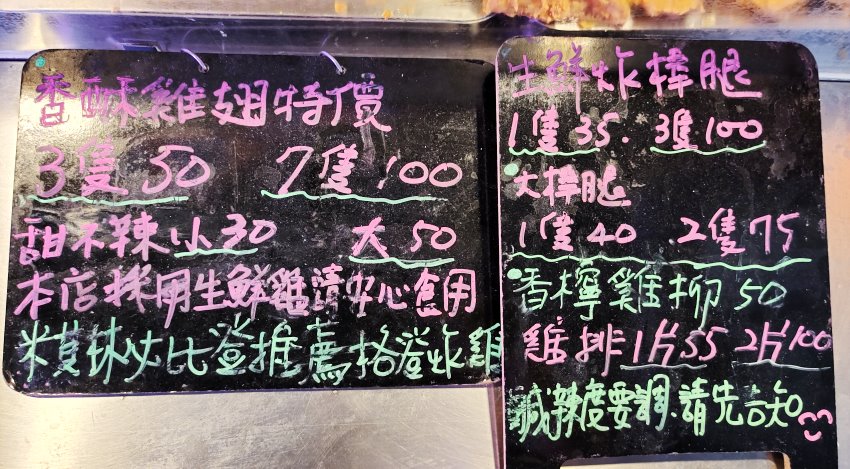 香酥雞翅特價
3隻50 7隻100
甜不辣小30 大50
本店採用生鮮雞請安心食用
比登推薦格登炸雞
生鮮炸棒腿
1隻35. 3隻100
大棒腿
1隻40 2隻75
香檸雞柳50
雞排1片55 2片100
鹹辣度要調.請先告知